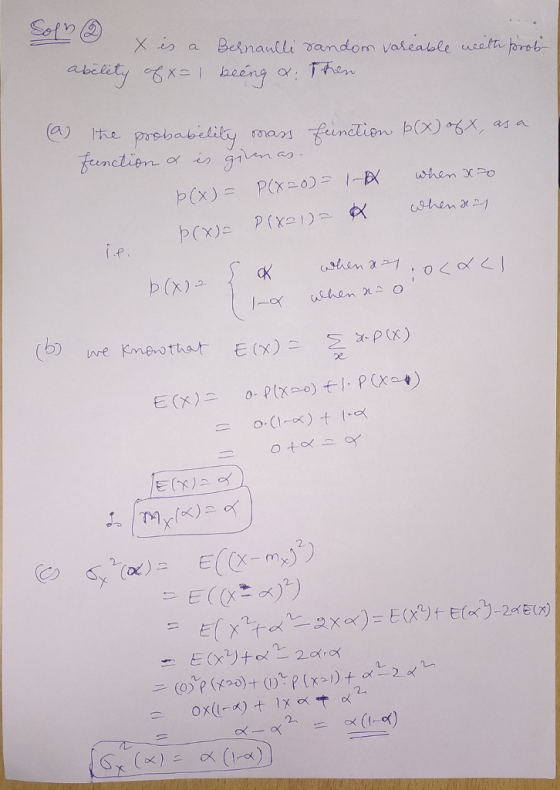 Soln ②
X is a Bernaulli random variable with prob-
ability of x=1 being α. Then
(a) the probability mass function p(x) of X, as a
function α is given as.
p(x) = P(X=0) = 1-α when x=0
p(x) = P(X=1) = α when x=1
i.e.
p(x) = { α when x=1 ; 0<α<1
1-α when x=0
(b) we know that E(X) = Σ_x x.P(X)
E(X) = 0.P(X=0) + 1.P(X=1)
= 0.(1-α) + 1.α
= 0+α = α
E(X) = α
So m_X(α) = α
(c) σ_X²(α) = E((X-m_X)²)
= E((X-α)²)
= E(X²+α²-2Xα) = E(X²)+E(α²)-2αE(X)
= E(X²)+α²-2α.α
= (0)²P(X=0)+(1)².P(X=1)+α²-2α²
= 0x(1-α) + 1xα - α²
= α-α² = α(1-α)
σ_X²(α) = α(1-α)